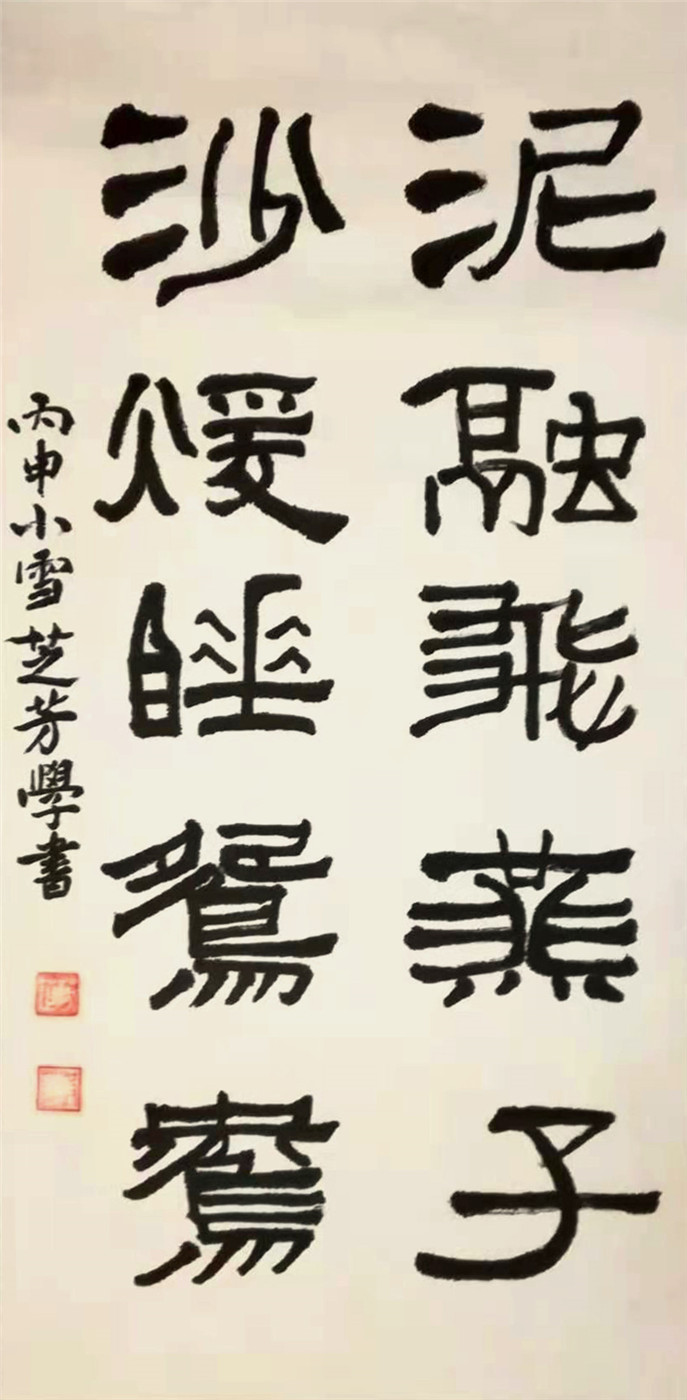 泥融飛燕子
沙煖睡鴛鴦
丙申小雪芝芳學書